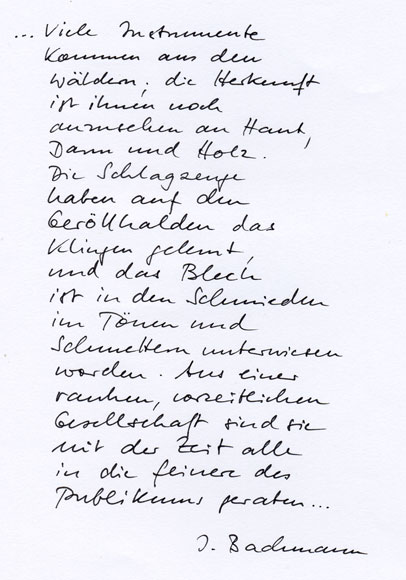 ... Viele Instrumente
kommen aus den
Wäldern; die Herkunft
ist ihnen noch
anzusehen an Haut,
Darm und Holz.
Die Schlagzeuge
haben auf den
Geröllhalden das
Klingen gelernt,
und das Blech
ist in den Schmieden
im Tönen und
Schmettern unterwiesen
worden. Aus einer
rauhen, vorzeitlichen
Gesellschaft sind sie
mit der Zeit alle
in die feinere des
Publikums geraten...
I. Bachmann